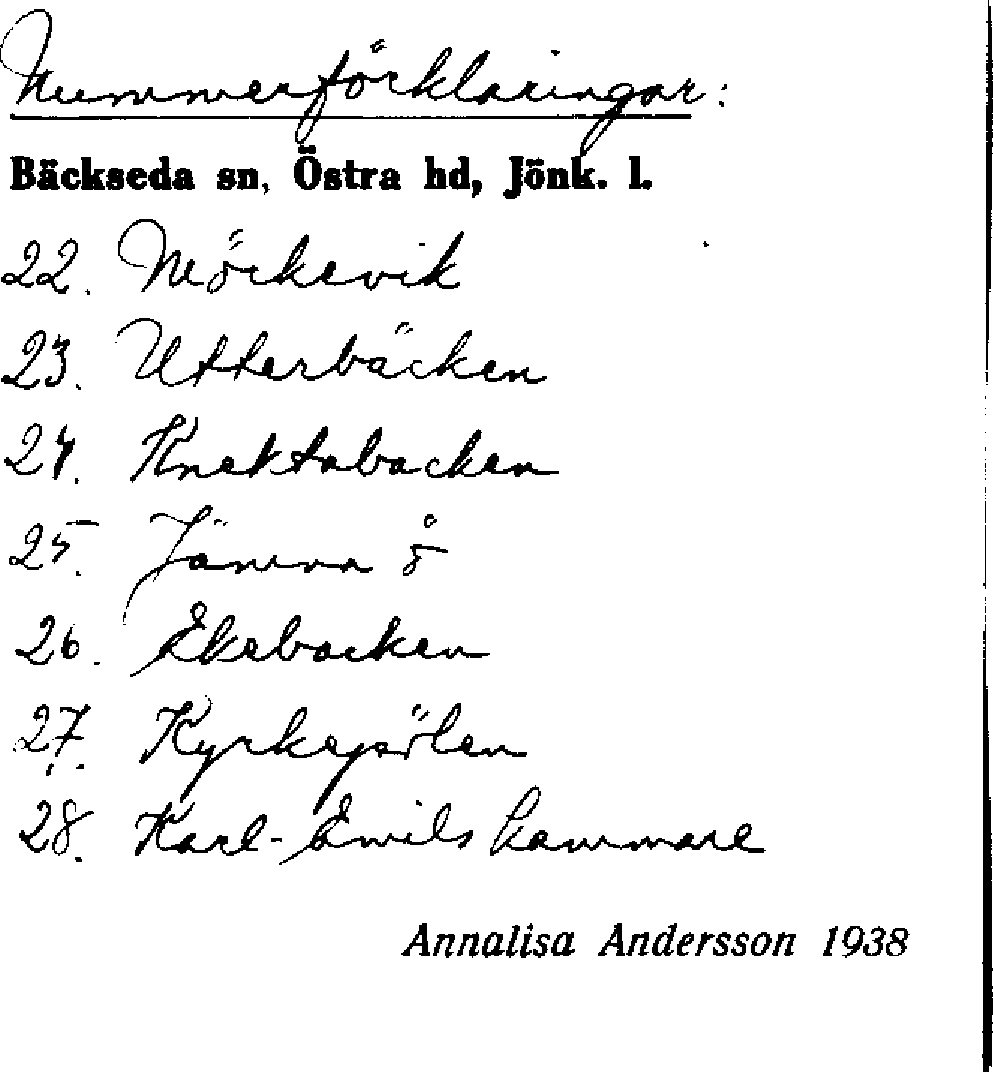 Nummerförklaringar:
Bäckseda sn, Östra hd, Jönk. l.
22. Mörkevik
23. Utterbäcken
24. Knektabacken
25. Jämna å
26. Ekebacken
27. Kyrkegölen
28. Karl-Emils kammare
Annalisa Andersson 1938